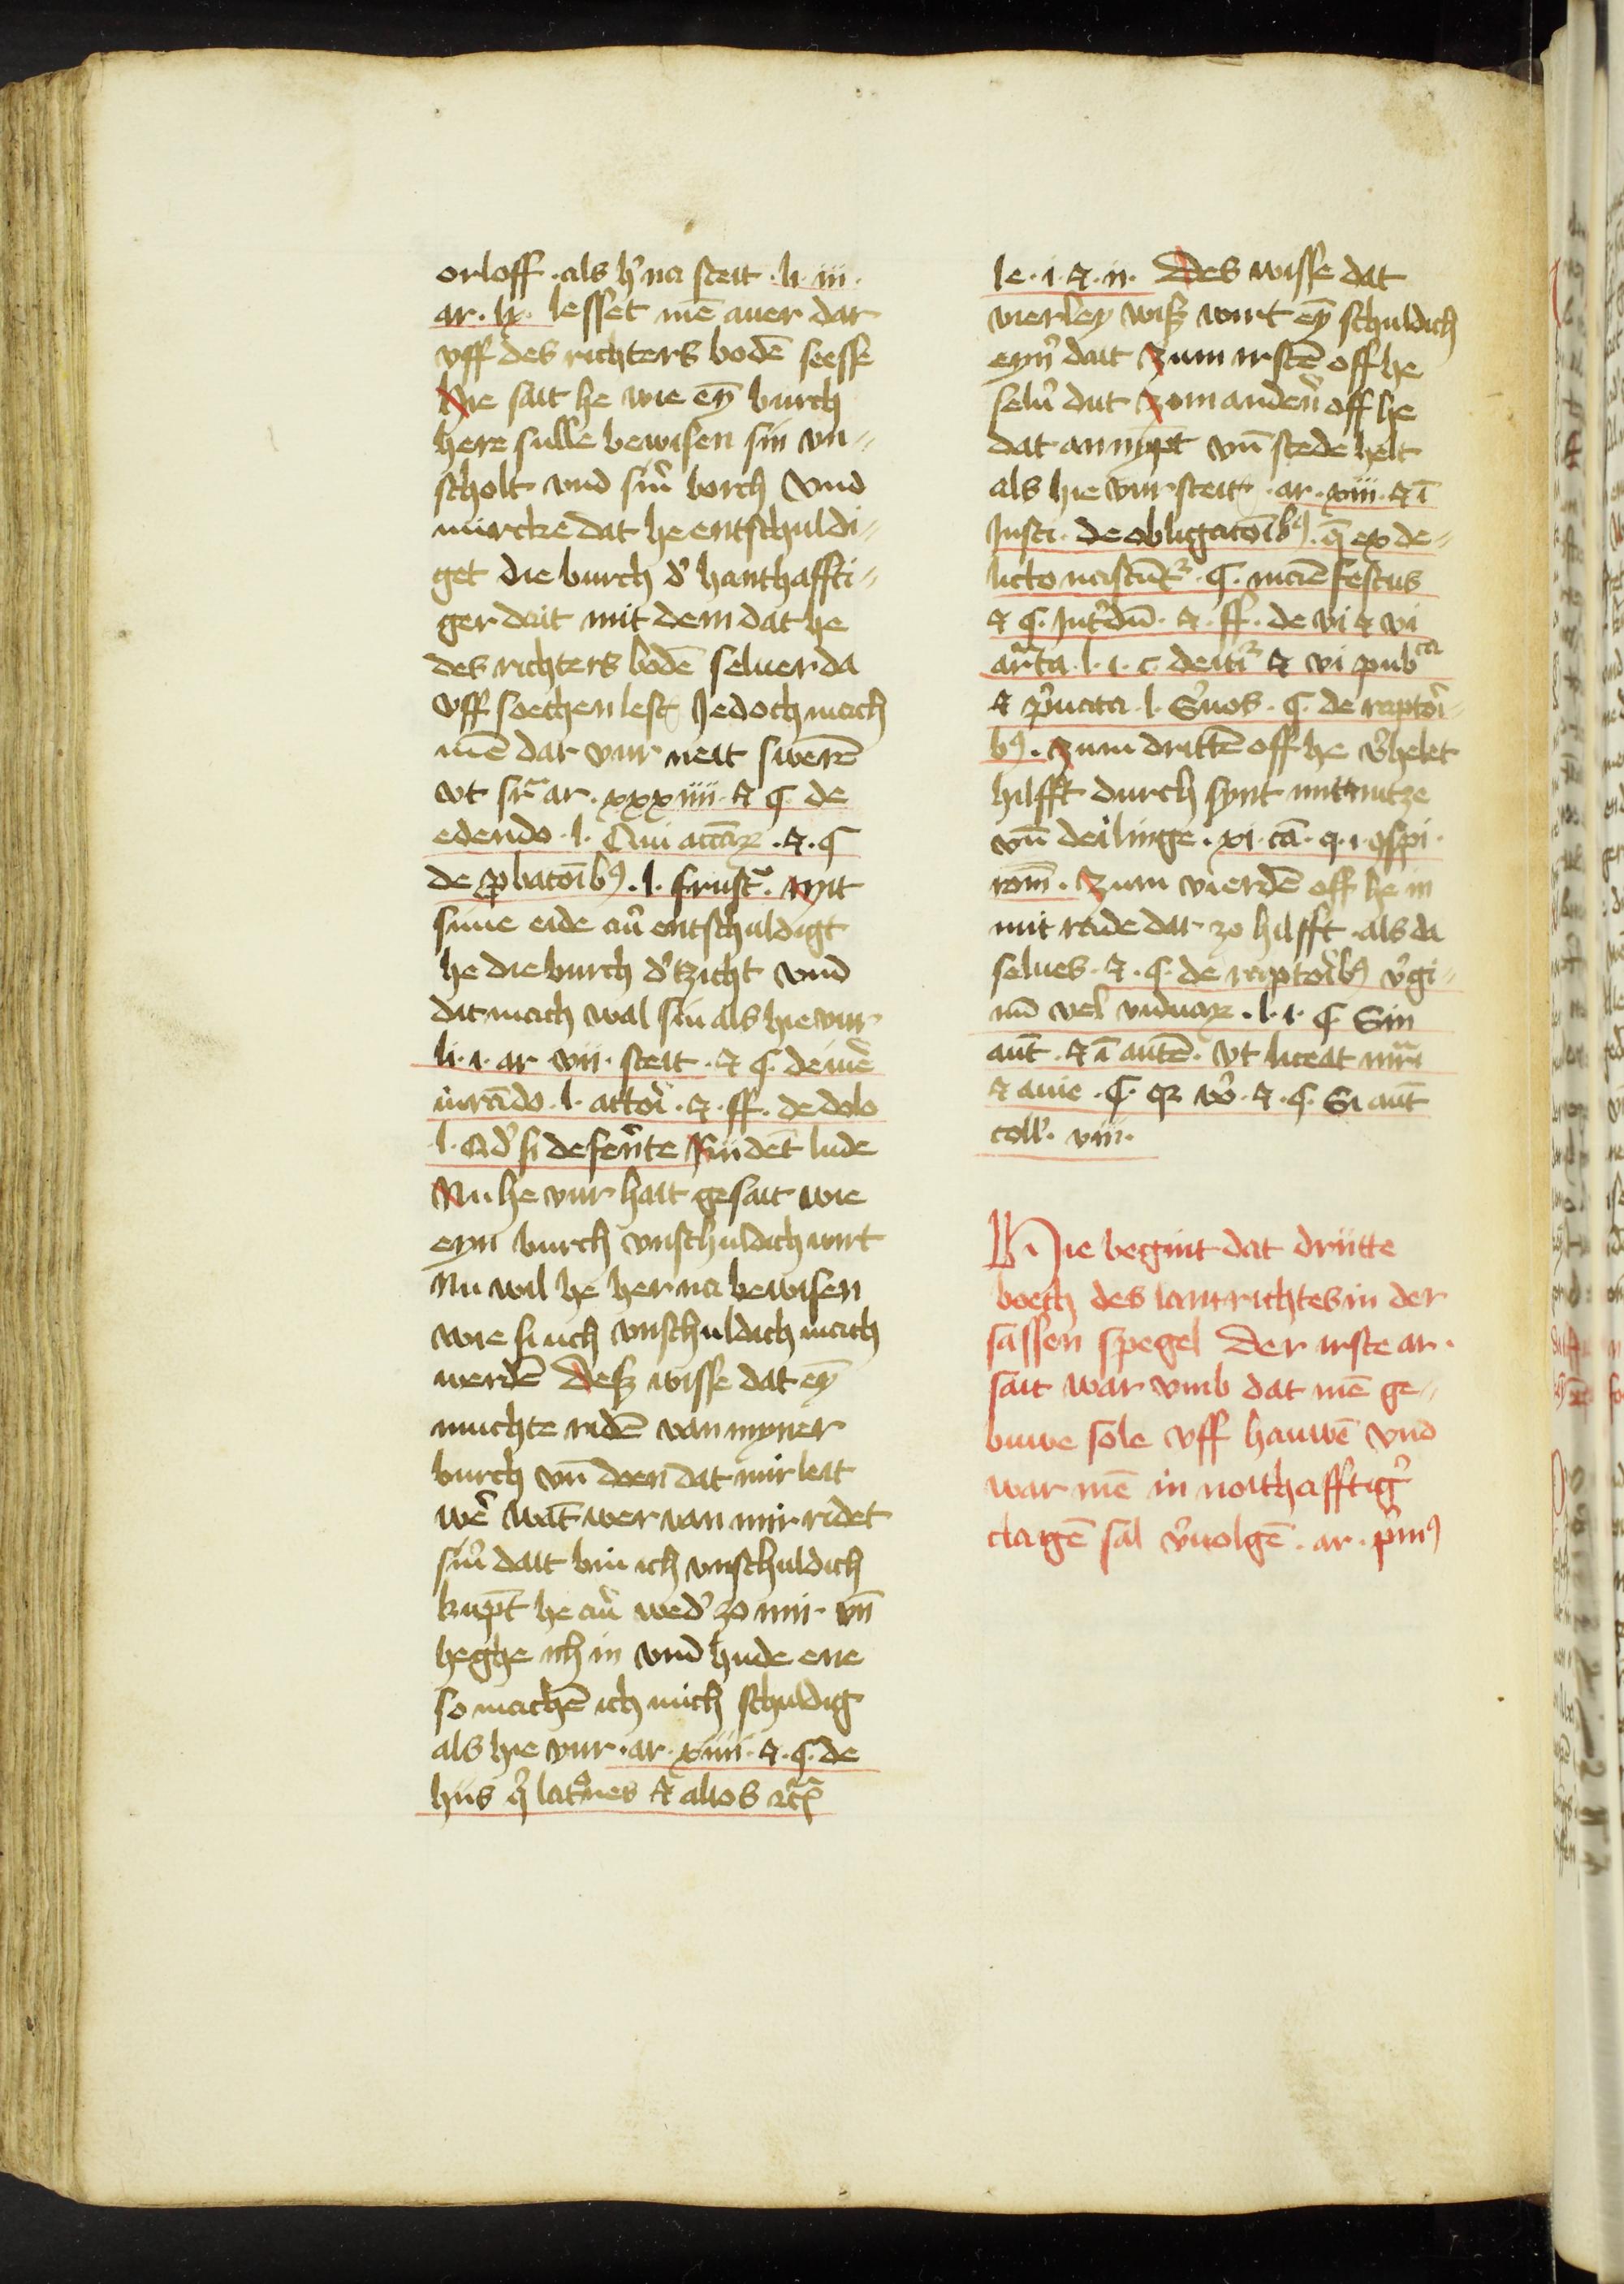 orloff . als h'na steit . li . iii .
ar . lx . lesset mē auer dar
vff des richters bodē seesse
Hie sait he wie eȳ burch
here sulle bewisen sin vn„
scholt vnd sin' borch Vnd
mircke dat he entschuldi„
get die burch d' hanthaffti„
ger dait mit dem dat he
des richters bodē seluer da
vff soechen lest Jedoch mach
mē dar vur neit swerē
vt sr̄ ar . xxxiiii . & C . de
edendo . l . Qui accāꝝ . & . C
de ꝓbatoībꝯ . l . frustͣ . Myt
sime eide au' entschuldigt
he die burch d' tzicht vnd
dat mach wal sin als hie vur
li . i . ar vii . steit . & C . de iuē
iurādo . l . actori . & . ff . de dolo
l . Qd' si defen'te Ridēt lude
Nu he vur hait gesait wie
eyn burch vnschuldich wirt
Nu wil he her na bewisen
wie si uch vnschuldich mach
werdē Desz wisse dat eȳ
muchte ridē van myner
burch vn̄ doen dat mir leit
wer' wāt wer van mir ridet
sin' dait bin ich vnschuldich
kupt he au' wed' zo mir vn̄
heghe ich in vnd hude ene
so machē ich mich schuldig
als hie vur . ar . xiiii . & . C . de
hiis q' latͦnes & alios rc̄
le . i . & . ii . Des wisse dat
vierley wisz wirt eȳ schuldich
eyn' dait Zum irstē off he
selu' dut Zom andern off he
dat annȳpt vn̄ stede helt
als hie vur steit . ar . xiiii . & ī
Insti . de obligatoībꝯ . q̄ ex de„
licto nascūt' . C . maīefestus
& C . Int'dū . & . ff . de vi & vi
ar̄ta . l . i . c . de uit' & vi pubᶜᵃ
& p'uata . l . S'uos . C . de raptoī„
bꝯ . Zum drittē off he v'helet
hilfft durch synt mit nutze
vn̄ deilinge . xi . cā . q . i . 9spi„
rom̄ . Zum vierdē off he in
mit raide dar zo hilfft . als da
selues . & . C . de raptoībꝯ v'gi„
nū vel viduaꝝ . l . i . C . Sin
aut̄ . & ī autē . Vt liceat mr̄i
& auie . C . qz vo' . & . C . Si aut̄
coll' . viii .
Hie begint dat drutte
boech des lantrichtes in der
sassen spegel Der irste ar .
sait war vmb dat mē ge„
buwe sole vff hauwē vnd
war mē in noithafftig'
clagē sal v'uolgē . ar . p'mꝯ